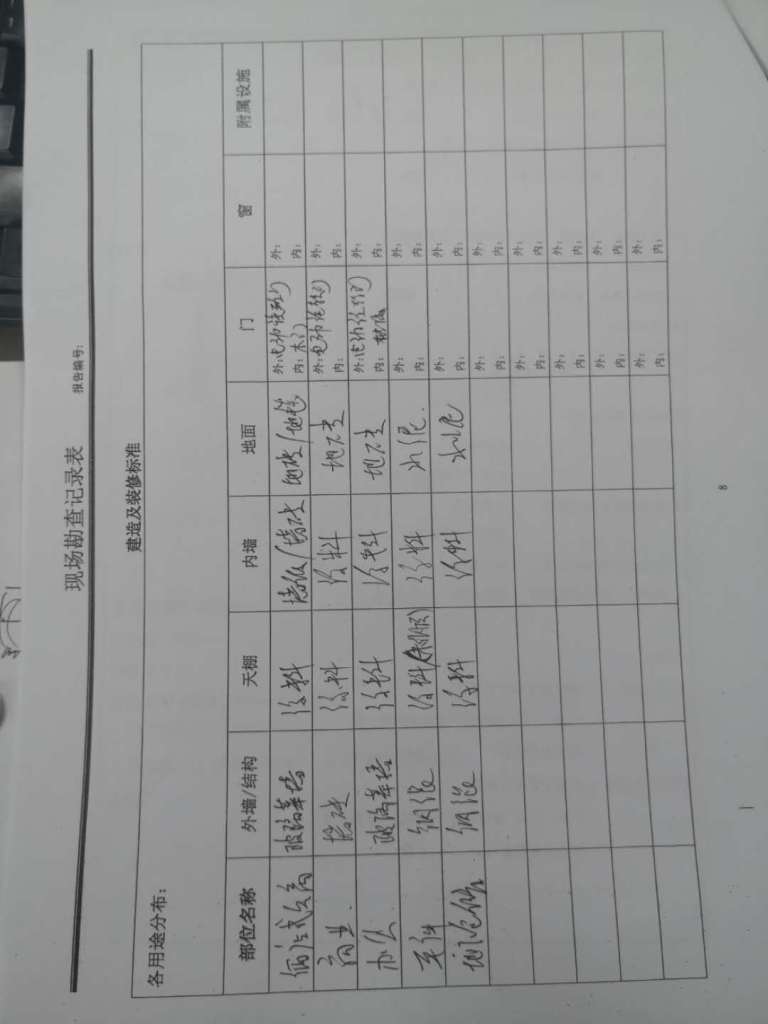 现场勘查记录表
报告编号:
建造及装修标准
各用途分布:
部位名称 外墙/结构 天棚 内墙 地面 门 窗 附属设施
玻璃幕墙 涂料 墙纸/墙砖 地砖/地毯 外: 内:木门 外: 内:
商业 墙砖 涂料 涂料 地石 外: 内: 外: 内:
办公 玻璃幕墙 涂料 涂料 地石 外: 内:玻璃 外: 内:
车库 钢混 涂料 涂料 水泥 外: 内: 外: 内:
钢混 涂料 涂料 水泥 外: 内: 外: 内:
外: 内: 外: 内:
外: 内: 外: 内:
外: 内: 外: 内:
外: 内: 外: 内:
外: 内: 外: 内:
8